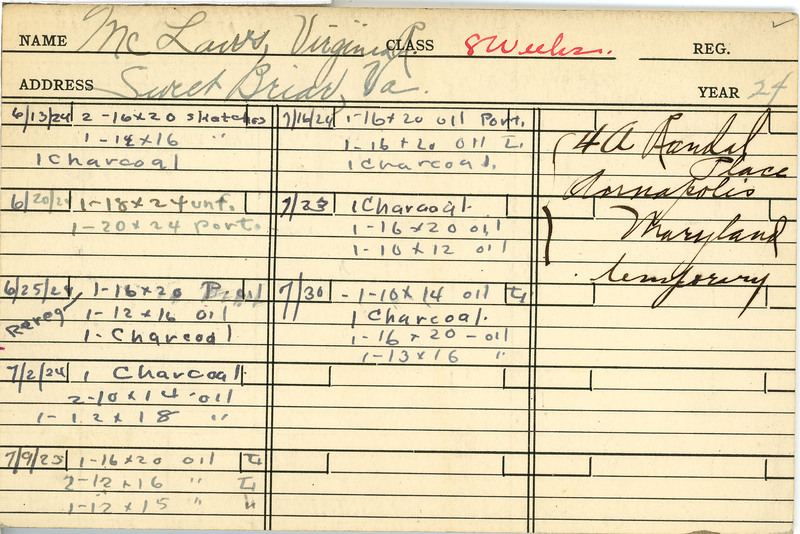 NAME Mc Laws, Virginia R. CLASS 8 Weeks. REG.
ADDRESS Sweet Briar, Va. YEAR 24
6/13/24 2 -16x20 sketches
1-12x16 "
1 Charcoal
6/20/24 1-18x24 unf.
1-20x24 Port.
6/25/24 1-16x20
Rereg 1-12x16 oil
1- Charcoal
7/2/24 1 Charcoal
2-10x14-oil
1-12x18 "
7/9/25 1-16x20 oil
2-12x16 "
1-12x15 " "
7/16/24 1-16x20 oil Port.
1-16x20 oil
1 Charcoal.
7/23 1 Charcoal.
1-16x20 oil
1-10x12 oil
7/30 -1-10x14 oil
1 Charcoal.
1-16x20-oil
1-13x16 "
4A Randal
Place
Annapolis
Maryland
temporary